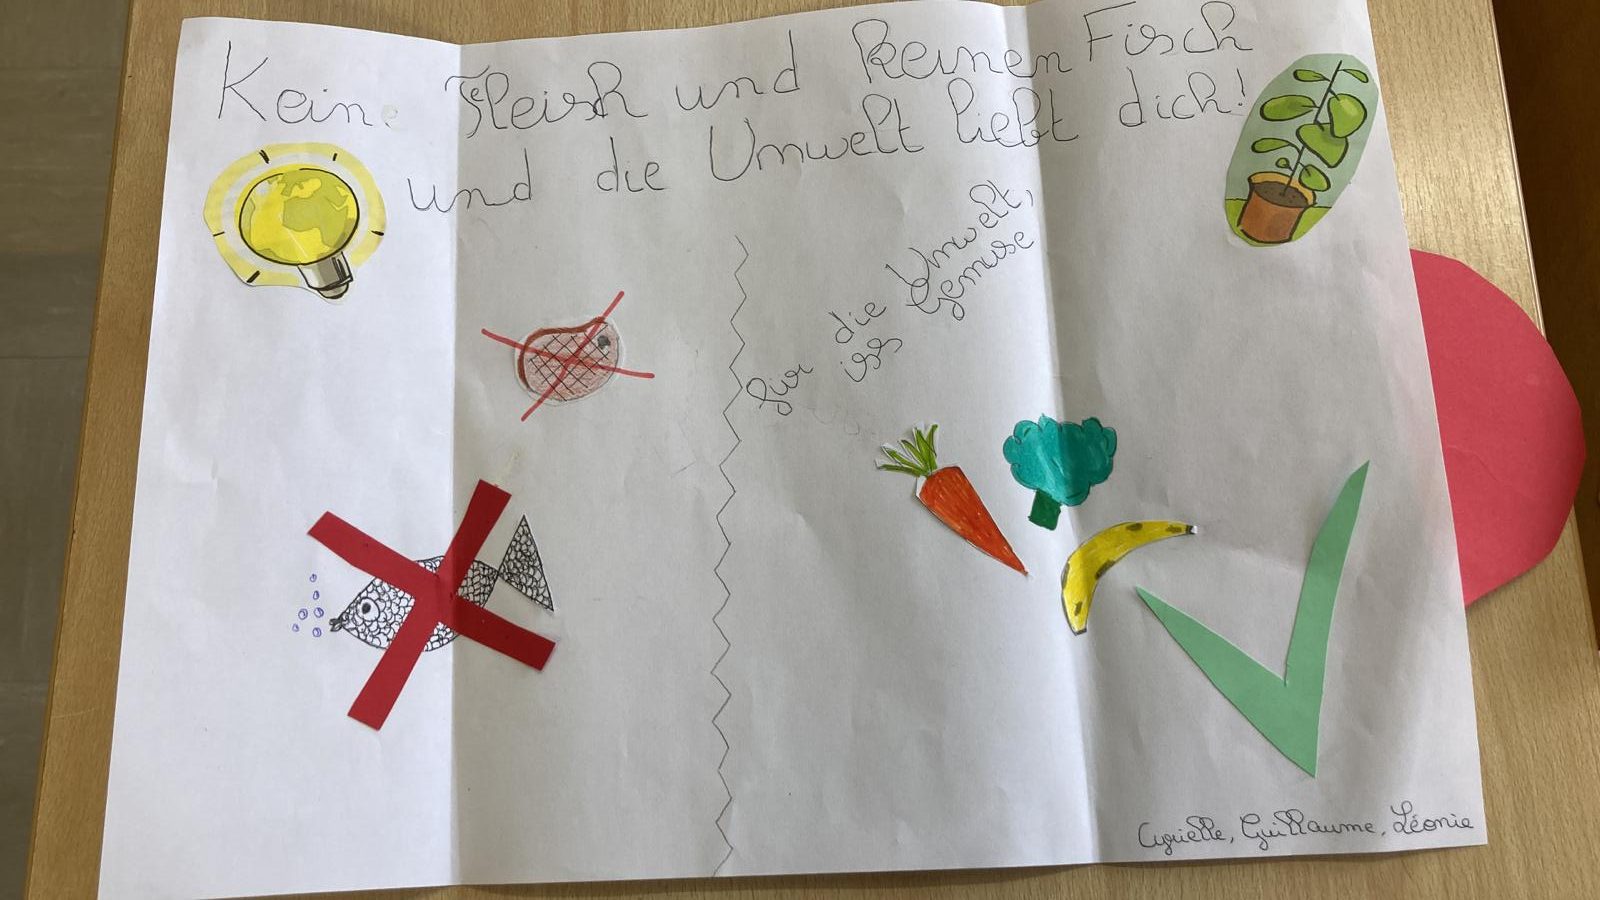 Kein Fleisch und keinen Fisch
und die Umwelt liebt dich!
für die Umwelt,
iss Gemüse
Cyrielle, Guillaume, Léonie